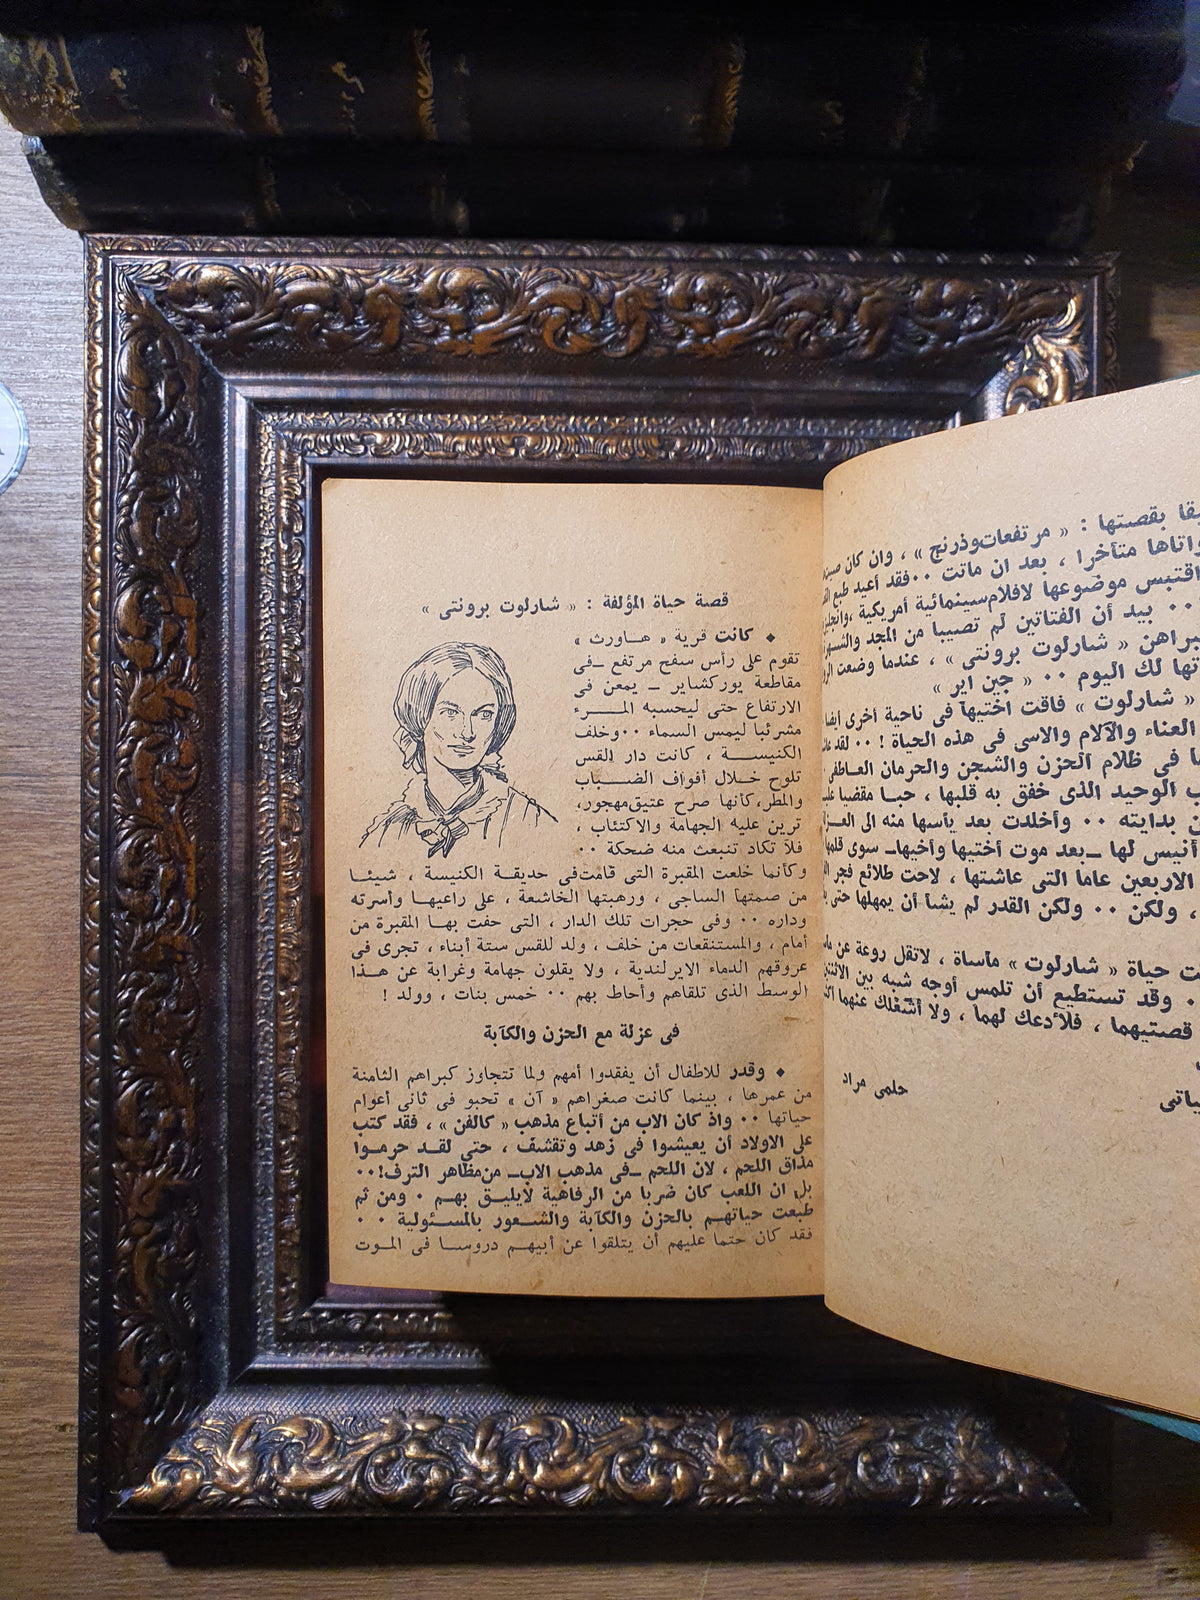 قا بقصتها : « مرتفعات وذرنج » ، وان كان
واتاها متأخرا ، بعد ان ماتت ٠٠ فقد أعيد طبع
اقتبس موضوعها لافلام سينمائية أمريكية ،
٠٠ بيد أن الفتاتين لم تصيبا من المجد والشهرة
« شارلوت برونتى » ، عندما وضعت
تها لك اليوم ٠٠ « جين اير »
« شارلوت » فاقت اختيها فى ناحية أخرى أيضا
العناء والآلام والاسى فى هذه الحياة ! ٠٠ لقد
ا فى ظلام الحزن والشجن والحرمان العاطفى
ب الوحيد الذى خفق به قلبها ، حبا مقضيا
ن بدايته ٠٠ وأخلدت بعد يأسها منه الى
أنيس لها ـ بعد موت أختيها وأخيها ـ سوى
الاربعين عاما التى عاشتها ، لاحت طلائع فجر
، ولكن ٠٠ ولكن القدر لم يشأ أن يمهلها حتى
ت حياة « شارلوت » مأساة ، لاتقل روعة عن
٠ وقد تستطيع أن تلمس أوجه شبه بين
قصتيهما ، فلأدعك لهما ، ولا أشغلك عنهما
حلمى مراد
قصة حياة المؤلفة : « شارلوت برونتى »
♦ كانت قرية « هـاورث »
تقوم على رأس سفح مرتفع ـ فى
مقاطعة يوركشاير ـ يمعن فى
الارتفاع حتى ليحسبه المـــرء
مشرئبا ليمس السماء ٠٠ وخلف
الكنيســة ، كانت دار القس
تلوح خــلال أفواف الضــباب
والمطر، كأنها صرح عتيق مهجور،
ترين عليه الجهامة والاكتئاب ،
فلا تكاد تنبعث منه ضحكة ٠٠
وكأنما خلعت المقبرة التى قامت فى حديقـة الكنيسة ، شـيئـا
من صمتها الساجى ، ورهبتها الخاشعة ، على راعيهـا وأسرته
وداره ٠٠ وفى حجرات تلك الدار ، التى حفت بهـا المقبرة من
أمام ، والمستنقعات من خلف ، ولد للقس ستة أبناء ، تجرى فى
عروقهم الدماء الايرلندية ، ولا يقلون جهامة وغرابة عن هـذا
الوسط الذى تلقاهم وأحاط بهم ٠٠ خمس بنات ، وولد !
فى عزلة مع الحزن والكآبة
♦ وقدر للاطفال أن يفقدوا أمهم ولما تتجاوز كبراهم الثامنة
من عمرها ، بينما كانت صغراهم « آن » تحبو فى ثانى أعوام
حياتها ٠٠ واذ كان الاب من أتباع مذهب « كالفن » ، فقد كتب
على الاولاد أن يعيشوا فى زهد وتقشف ، حتى لقـد حرمـوا
مذاق اللحم ، لان اللحم ـ فى مذهب الاب ـ من مظاهر الترف! ٠٠
بل ان اللعب كان ضربا من الرفاهية لايليـق بهـم ٠ ومن ثم
طبعت حياتهـم بالحزن والكآبة والشـعور بالمسـئولية ٠ ٠
فقد كان حتما عليهم أن يتلقوا عن أبيهـم دروسـا فى المـوت